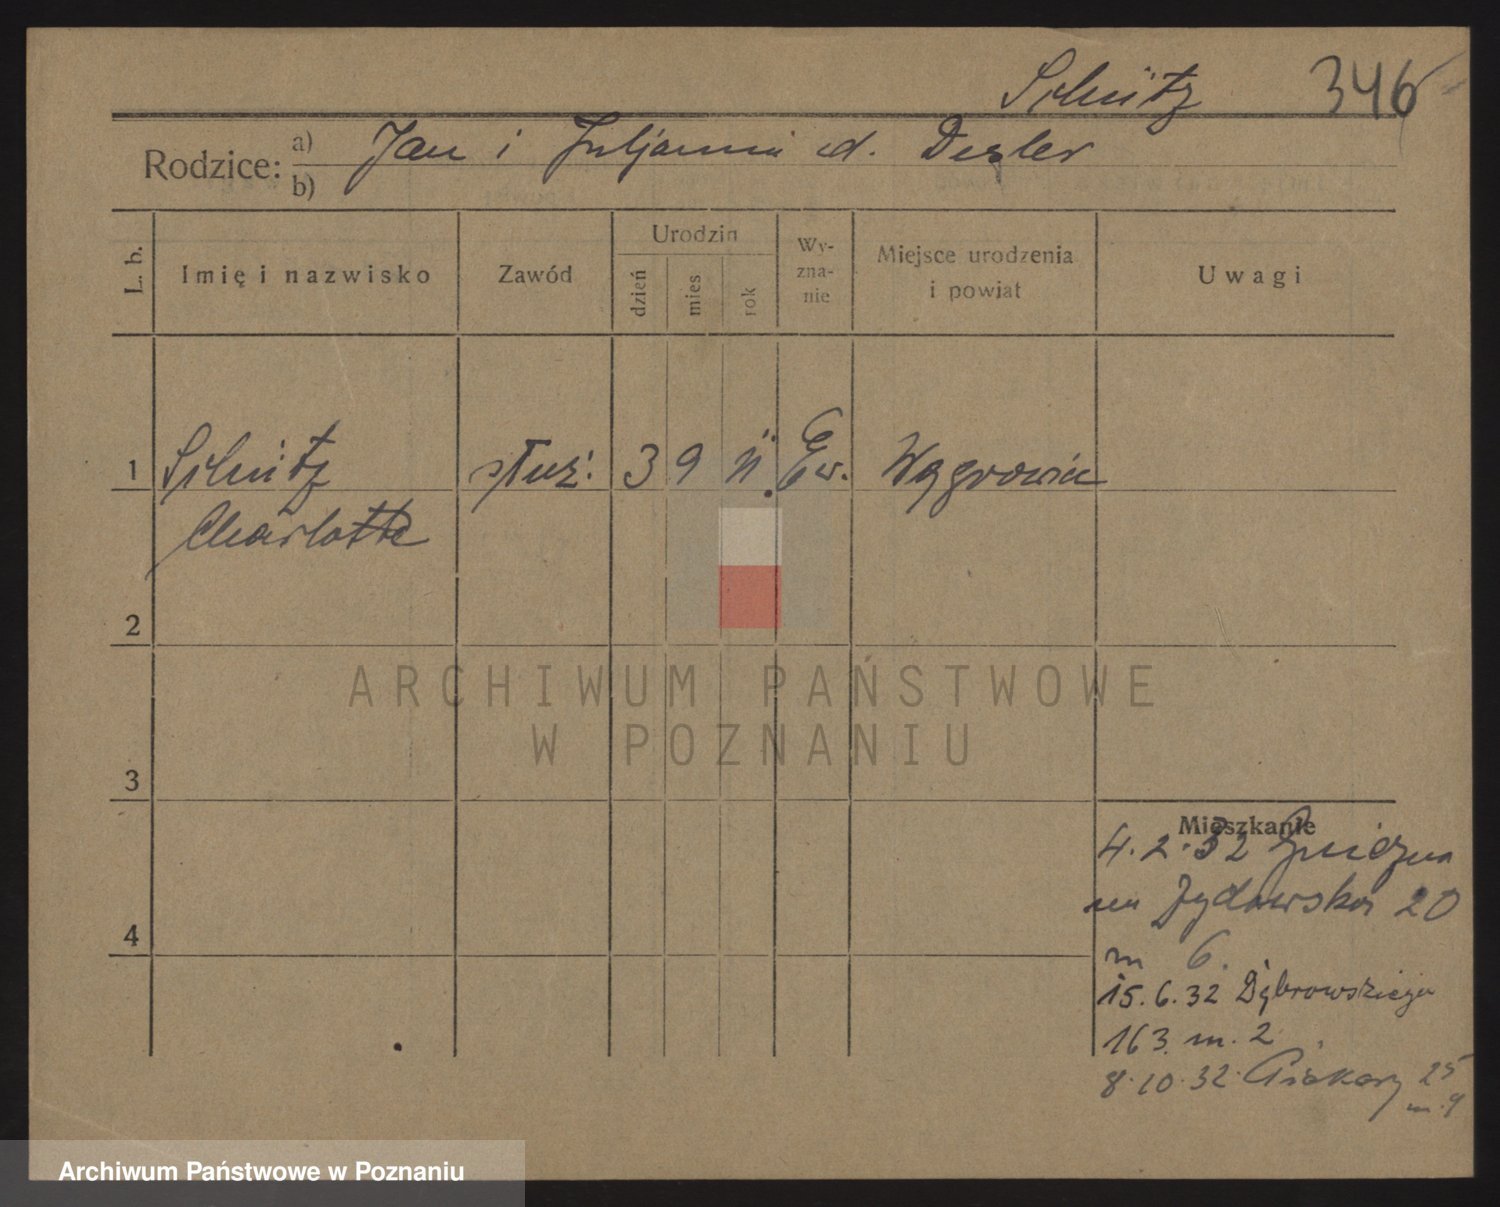 Schütz 346
Rodzice: a) Jan i Juljanna d. Desler
b)
L. b. Imię i nazwisko Zawód Urodzin Wy-zna-nie Miejsce urodzenia i powiat Uwagi
dzień mies rok
1 Schütz służ. 3 9 11. Ew. Wągrowiec
Charlotte
2
3
4
Mieszkanie
4.2.32 Gniezna
na Żydowska 20
m 6.
15.6.32 Dąbrowskiego
163. m. 2
8.10.32. Piekary 25
m. 9
ARCHIWUM PAŃSTWOWE
W POZNANIU
Archiwum Państwowe w Poznaniu